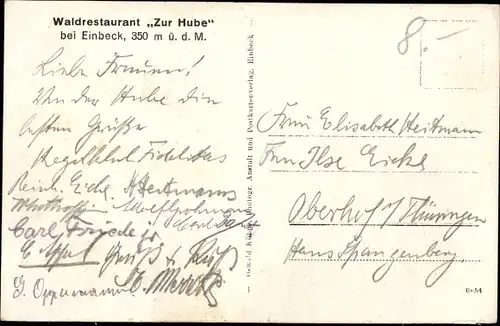 Waldrestaurant „Zur Hube"
bei Einbeck, 350 m ü. d. M.
8.-
Liebe Frauen!
Von der Hube die
besten Grüße
Kegelklub Fidelitas
Reinh. Eicke H Heitmann
Carl
Carl Friede
Gruß & Kuß
G. Oppermann
Photogr. Anstalt und Postkartenverlag, Einbeck
Frau Elisabeth Heitmann
Frau Ilse Eicke
Oberhof i/Thüringen
Haus Spangenberg.